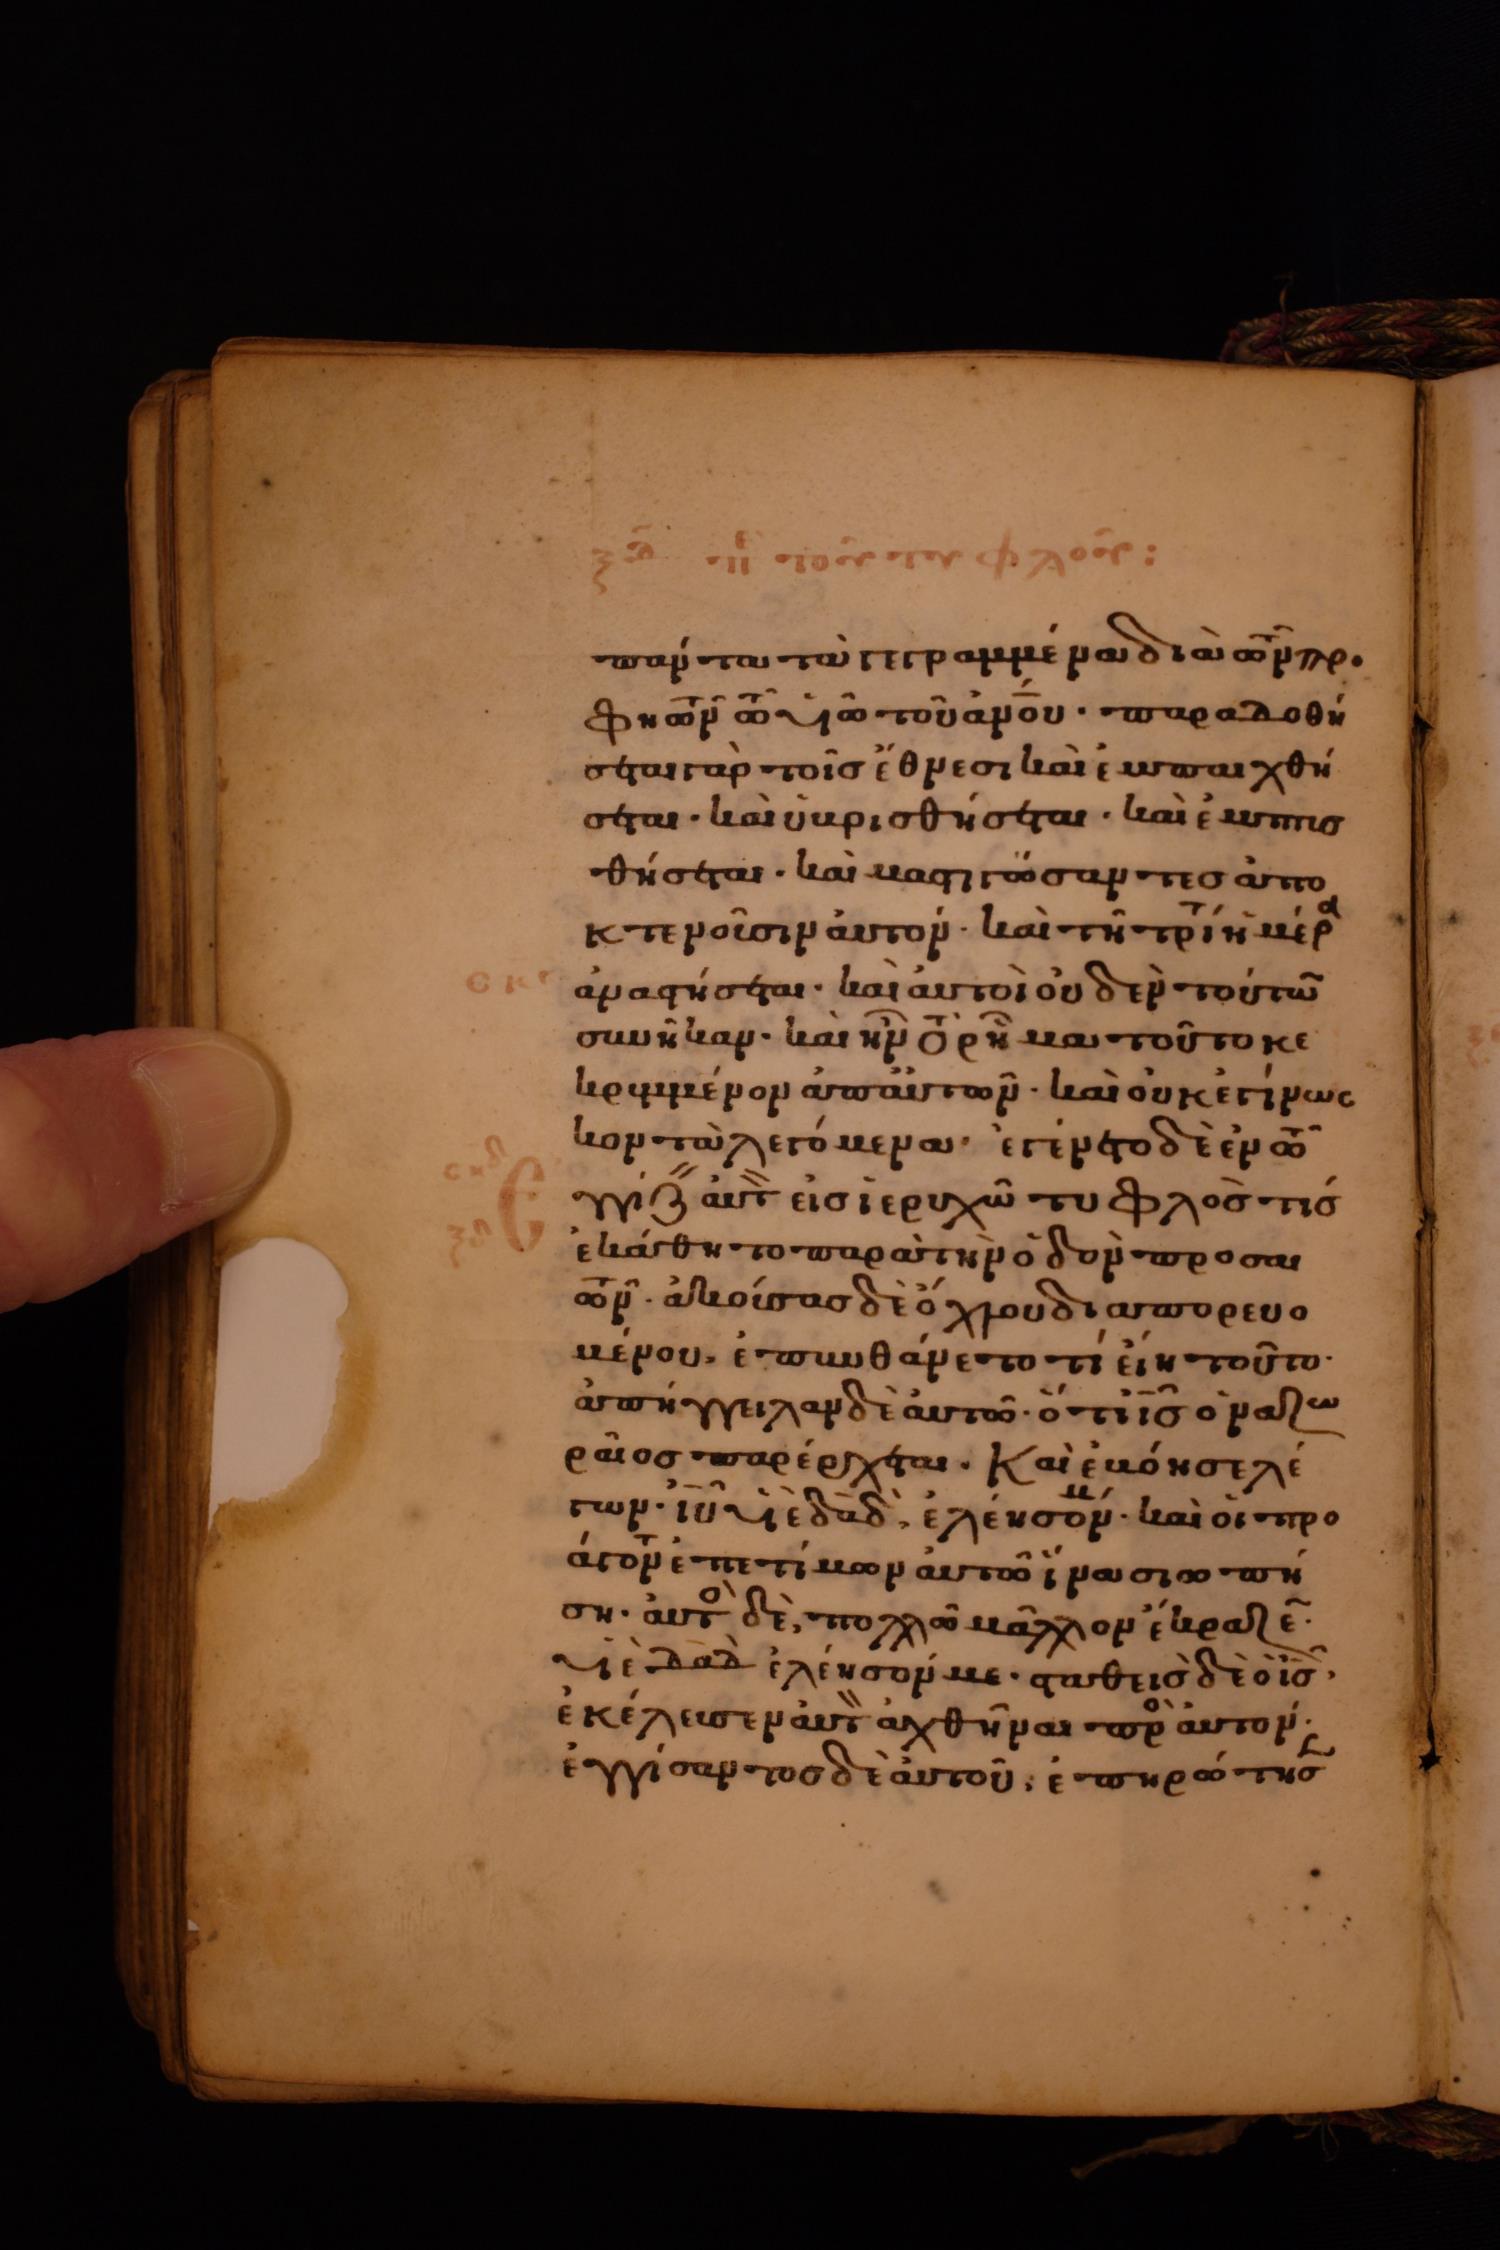 πάντα τὰ γεγραμμένα διὰ τῶν προ
φητῶν τῶ υἱῶ τοῦ ἀν̅ο̅υ· παραδοθή
σεται γὰρ τοῖς ἔθνεσι καὶ ἐμπαιχθή
σεται· καὶ ὑβρισθήσεται· καὶ ἐμπτυσ
θήσεται· καὶ μαστιγώσαντες ἀπο
κτενοῦσιν ἀυτόν· καὶ τῆ τρίτη ἡμέρα
ἀναστήσεται· καὶ ἀυτοὶ οὐδὲν τούτων
συνῆκαν· καὶ ἦν τὸ ῥῆμα τοῦτο κε
κρυμμένον ἀπ' ἀυτῶν· καὶ οὐκ ἐγίνωσ
κον τὰ λεγόμενα· ἐγένετο δὲ ἐν τῶ
γγίζειν ἀυτὸν εἰς ἱερυχῶ τυφλὸς τίς
ἐκάθητο παρὰ τὴν ὁδὸν προσαι
τῶν· ἀκούσας δὲ ὄχλου διαπορευο
μένου, ἐπυνθάνετο τί εἴη τοῦτο·
ἀπήγγειλαν δὲ ἀυτῶ· ὅτι ι̅ς̅ ὁ ναζω
ραῖος παρέρχεται. Καὶ ἐβόησε λέ
γων· ι̅υ̅ υἱὲ δα̅δ̅, ἐλέησόν με· καὶ οἱ προ
άγοντες ἐπετίμων ἀυτῶ ἵνα σιωπή
ση· ἀυτὸς δὲ, πολλῶ μᾶλλον ἔκραζεν·
υἱὲ δα̅δ̅ ἐλέησόν με· σταθεὶς δὲ ὁ ι̅ς̅,
ἐκέλευσεν ἀυτὸν ἀχθῆναι πρὸς ἀυτόν·
ἐγγίσαντος δὲ ἀυτοῦ, ἐπηρώτησεν